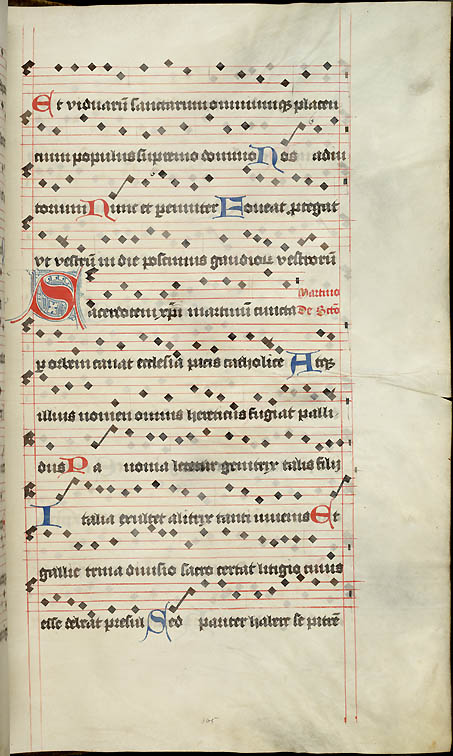 Et viduarū sanctarum omniumq̧ placen
cium populus supremo domino Nos adiu
torium Nunc et perenniter Foveat ꝓtegat
vt vestrum in die poscimus gaudioꝝ vestrorū
Martino
Sacerdotem xp̄i martinum cuncta De Sc̄to
ꝑ orbem canat ecclesia pacis catholice Atq̧
illius nomen omnis hereticus fugiat palli
dus Pa nonia letetur genitrix talis filij
Italia exultet alitrix tanti iuuenis Et
gallie trina diuisio sacro certat litigio cuius
esse debeat presul Sed pariter habere se patrē
165